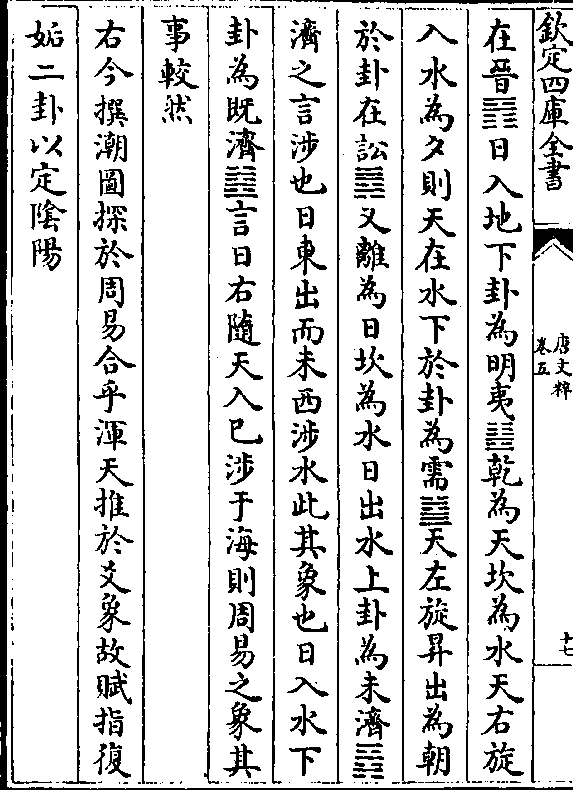 欽定四庫全書
唐文粹
卷五
十七
在晉䷢日入地下卦為明夷䷣乾為天坎為水天右旋
入水為夕則天在水下於卦為需䷄天左旋昇出為朝
於卦在訟䷅又離為日坎為水日出水上卦為未濟䷿
濟之言涉也日東出而未西涉水此其象也日入水下
卦為既濟䷾言日右隨天入已涉于海則周易之象其
事較然
右今撰潮圖探於周易合乎渾天推於爻象故賦指復
姤二卦以定陰陽